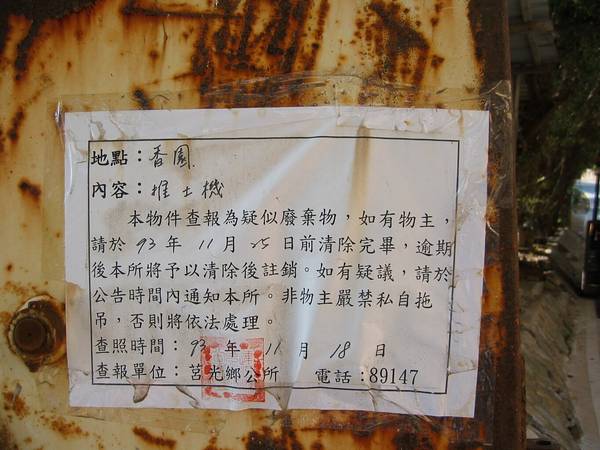 地點：香園
內容：推土機
本物件查報為疑似廢棄物，如有物主，
請於 93 年 11 月 25 日前清除完畢，逾期
後本所將予以清除後註銷。如有疑議，請於
公告時間內通知本所。非物主嚴禁私自拖
吊，否則將依法處理。
查照時間：93 年 11 月 18 日
查報單位：莒光鄉公所 電話：89147